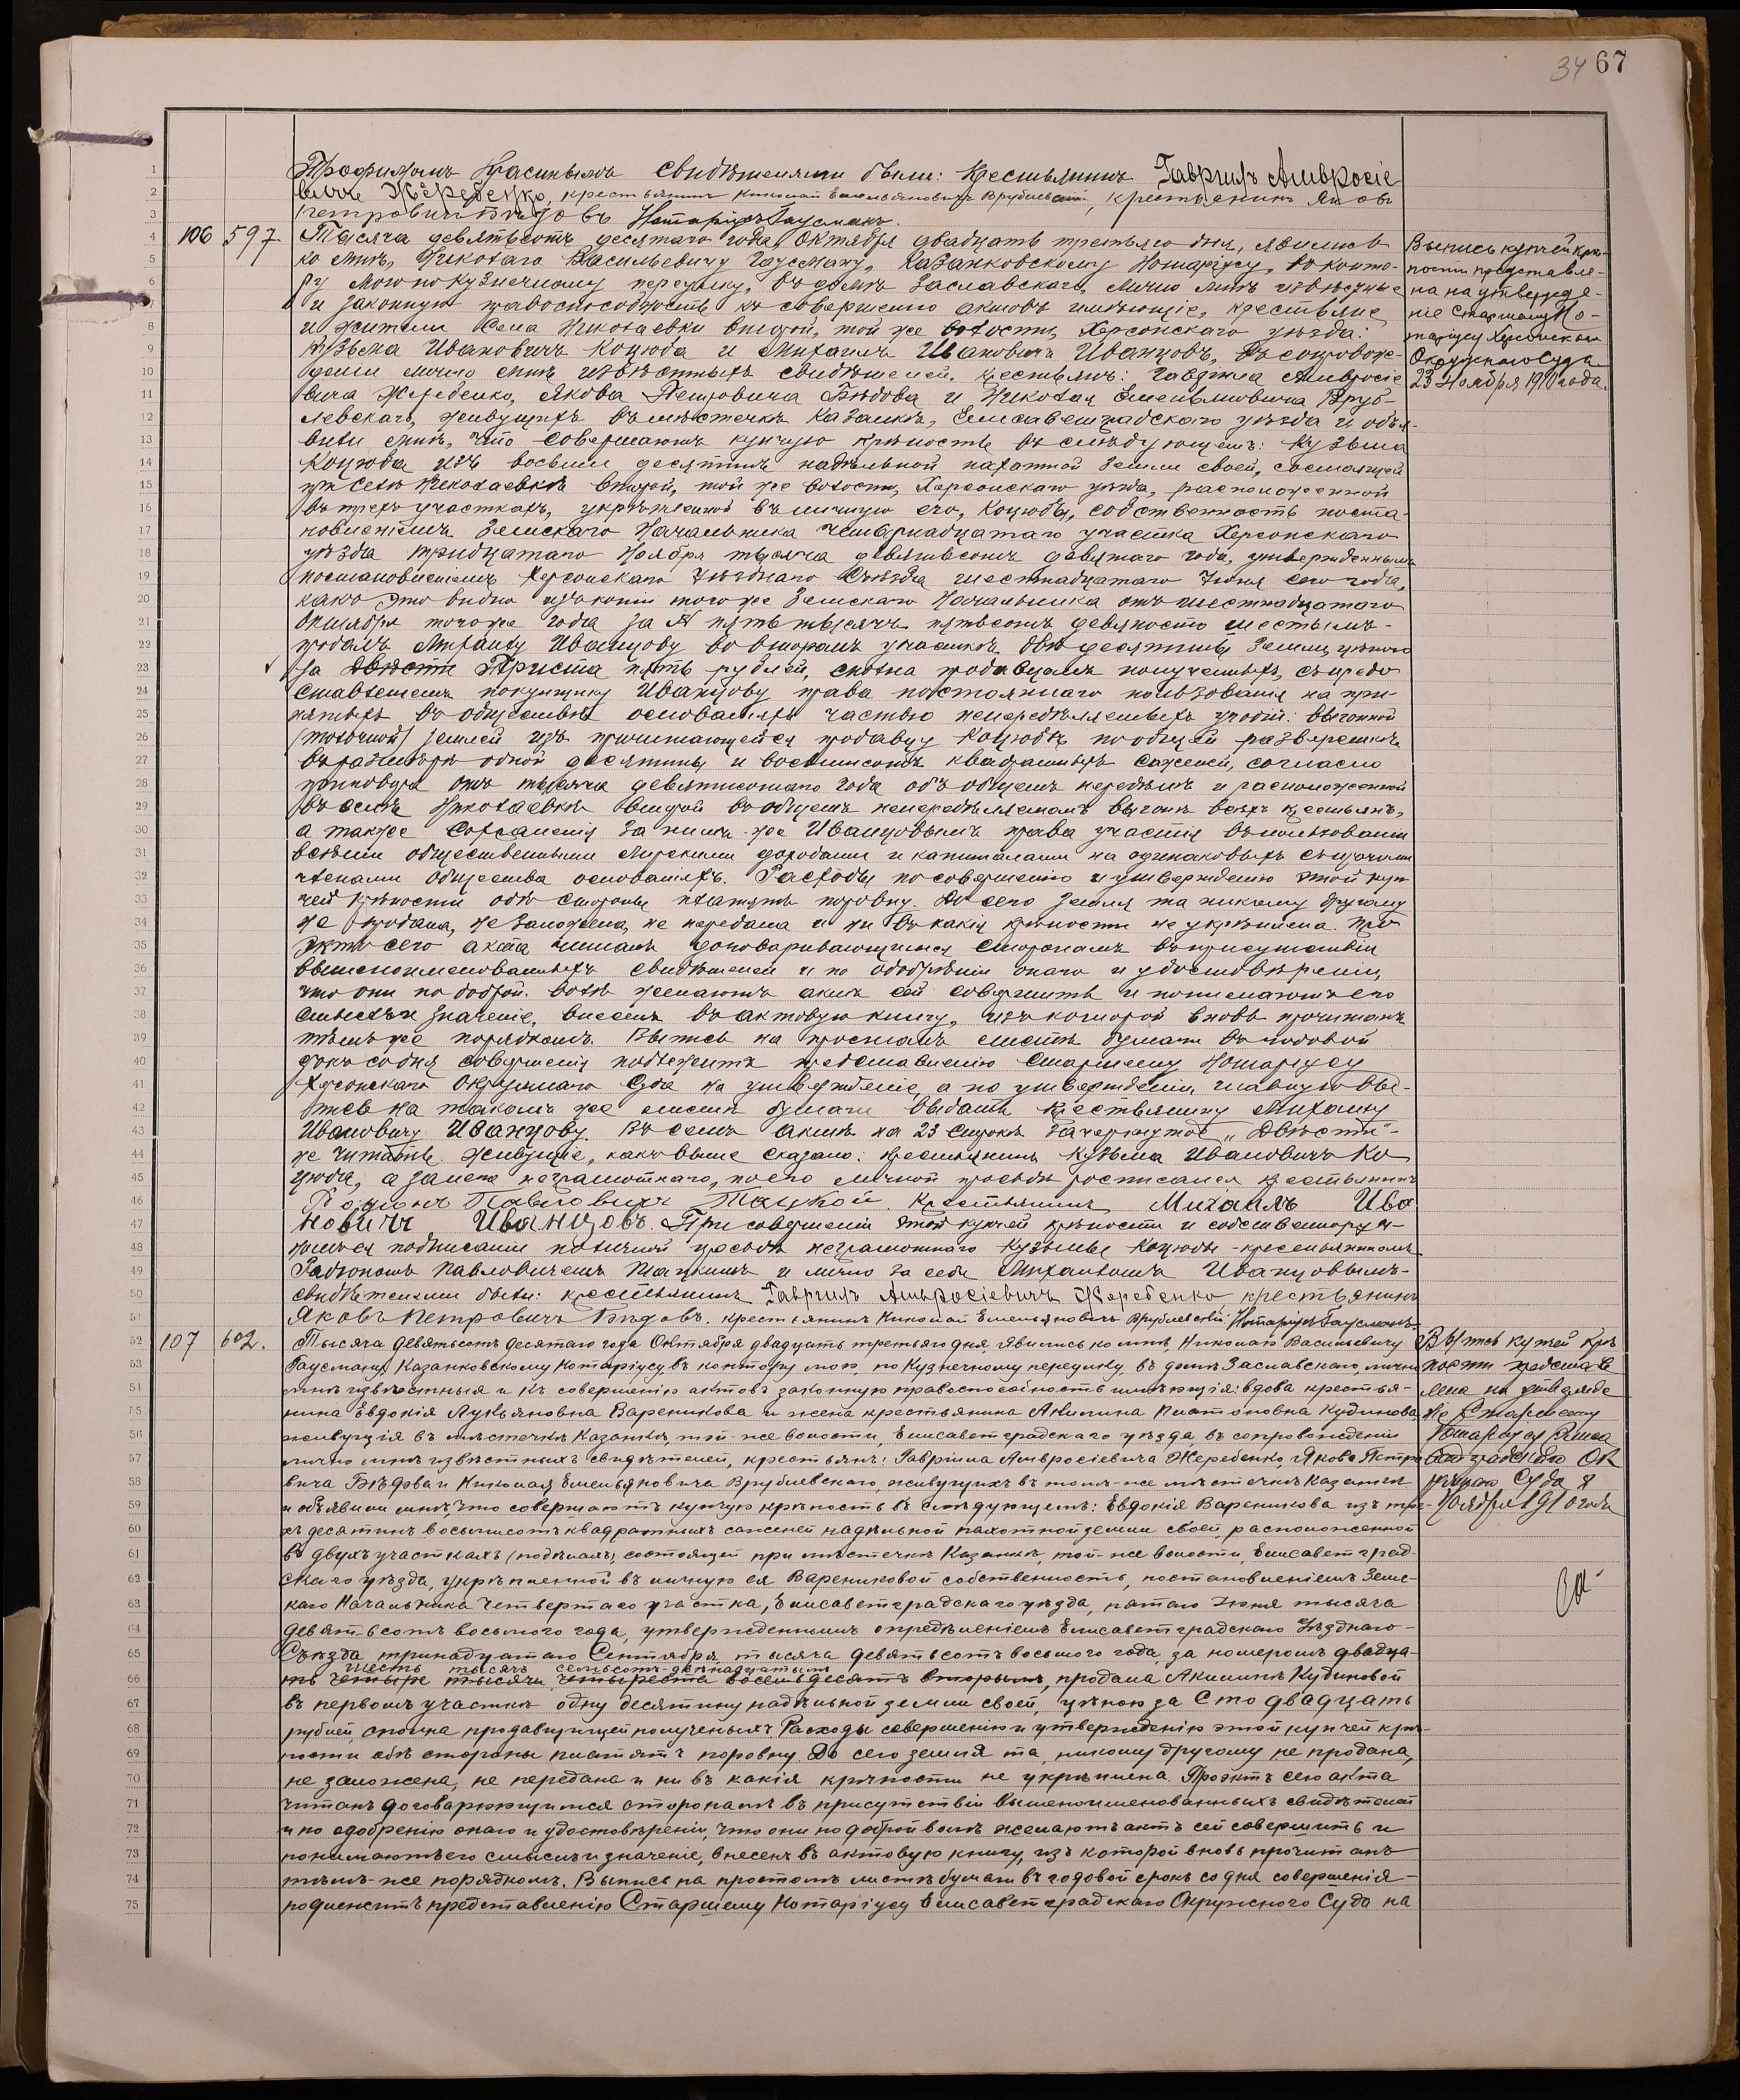 34 67
Трофимомъ Красинымъ свидѣтелями были: крестьянинъ Гавріилъ Амвросіе
вичъ Жеребенко, крестьянинъ Николай Емельяновичъ Врублевскій, крестьянинъ Яковъ
Петровичъ Бѣдовъ Нотаріусъ Гаусманъ.
106 597. Тысяча девятьсотъ десятаго года, Октября двадцать третьяго дня, явились
ко мнѣ, Николаю Васильевичу Гаусману, Казанковскому Нотаріусу, въ конто-
ру мою по Кузнечному переулку, въ домѣ Заславскаго, лично мнѣ извѣстные
и законную правоспособность къ совершенію актовъ имѣющіе, крестьяне
и жители села Николаевки второй, той же волости, Херсонскаго уѣзда:
Кузьма Ивановичъ Коцюба и Михаилъ Ивановичъ Иванцовъ, въ сопровож-
деніи лично мнѣ извѣстныхъ свидѣтелей, крестьянъ: Гавріила Амвросіе
вича Жеребенко, Якова Петровича Бѣдова и Николая Емельяновича Вруб-
левскаго, живущихъ въ мѣстечкѣ Казанкѣ, Елисаветградскаго уѣзда и объя-
вили мнѣ, что совершаютъ купчую крѣпость въ слѣдующемъ: Кузьма
Коцюба изъ восьми десятинъ надѣльной пахатной земли своей, состоящей
при селѣ Николаевкѣ второй, той же волости, Херсонскаго уѣзда, расположенной
въ трехъ участкахъ, укрѣпленной въ личную его, Коцюбы, собственность поста-
новленіемъ Земскаго Начальника четырнадцатаго участка Херсонскаго
уѣзда тридцатаго Ноября тысяча девятьсотъ девятаго года, утвержденнымъ
постановленіемъ Херсонскаго Уѣзднаго Съѣзда шестнадцатаго Іюня сего года,
какъ это видно изъ копіи того же Земскаго Начальника отъ шестнадцатаго
Октября того же года за № пять тысячъ пятьсотъ девяносто шестымъ-
продалъ Михаилу Иванцову во второмъ участкѣ двѣ десятины земли, цѣною
за Двѣсти Триста пять рублей, сполна продавцемъ полученныхъ, съ предо
ставленіемъ покупщику Иванцову права постояннаго пользованія на при-
нятыхъ въ обществѣ основаніяхъ частью непередѣляемыхъ угодій: выгонной
(толочной) землей изъ причитающейся продавцу Коцюбѣ по общей разверсткѣ
въ размѣрѣ одной десятины и восьмисотъ квадратныхъ саженей, согласно
приговора отъ тысяча девятисотаго года объ общемъ передѣлѣ и расположенной
въ селѣ Николаевкѣ второй въ общемъ непередѣляемомъ выгонѣ всѣхъ крестьянъ,
а также сохраненія за нимъ-же Иванцовымъ права участія въ пользованіи
всѣми общественными мірскими доходами и капиталами на одинаковыхъ съ прочими
членами общества основаніяхъ. Расходы по совершенію и утвержденію этой куп
чей крѣпости обѣ стороны платятъ поровну. До сего земля та никому другому
не продана, не заложена, не передана и ни въ какія крѣпости не укрѣплена. Про
эктъ сего акта читанъ договаривающимся сторонамъ въ присутствіи
вышепоименованныхъ свидѣтелей и по одобреніи онаго и удостовѣреніи,
что они по доброй волѣ желаютъ актъ сей совершить и понимаютъ его
смыслъ и значеніе, внесенъ въ актовую книгу, изъ которой вновь прочитанъ
тѣмъ же порядкомъ. Выпись на простомъ листѣ бумаги въ годовой
срокъ со дня совершенія подлежитъ представленію Старшему Нотаріусу
Херсонскаго Окружнаго Суда на утвержденіе, а по утвержденіи, главную вы-
пись на такомъ же листѣ бумаги выдать крестьянину Михаилу
Ивановичу Иванцову. Въ семъ актѣ на 23 строкѣ зачеркнутое „Двѣсти"-
не читать. Живущіе, какъ выше сказано: крестьянинъ Кузьма Ивановичъ Ко
цюба, а за него неграмотнаго, по его личной просьбѣ росписался крестьянинъ
Родіонъ Павловичъ Тацкой. Крестьянинъ Михаилъ Ива
новичъ Иванцовъ. При совершеніи этой купчей крѣпости и собственноруч-
номъ ея подписаніи по личной просьбѣ неграмотнаго Кузьмы Коцюбы - крестьяниномъ
Радіономъ Павловичемъ Тацкимъ и лично за себя Михаиломъ Иванцовымъ-
свидѣтелями были: крестьянинъ Гавріилъ Амвросіевичъ Жеребенко, крестьянинъ
Яковъ Петровичъ Бѣдовъ. крестьянинъ Николай Емельяновичъ Врублевскій. Нотаріусъ Гаусманъ-
Выпись купчей крѣ-
пости представле-
на на утвержде-
ніе Старшему Но-
таріусу Херсонскаго
Окружнаго Суда
23 Ноября 1910 года.
107 602. Тысяча девятьсотъ десятаго года Октября двадцать третьяго дня, явились ко мнѣ, Николаю Васильевичу
Гаусману, Казанковскому Нотаріусу, въ контору мою, по Кузнечному переулку, въ домѣ Заславскаго, лично
мнѣ извѣстныя и къ совершенію актовъ законную правоспособность имѣющія: вдова крестья-
нина Евдокія Лукьяновна Вареникова и жена крестьянина Акилина Платоновна Кудинова,
живущія въ мѣстечкѣ Казанкѣ, той-же волости, Елисаветградскаго уѣзда въ сопровожденіи
лично мнѣ извѣстныхъ свидѣтелей, крестьянъ: Гавріила Амвросіевича Жеребенко, Якова Петро
вича Бѣдова и Николая Емельяновича Врублевскаго, живущихъ въ томъ-же мѣстечкѣ Казанкѣ
и объявили мнѣ, что совершаютъ купчую крѣпость въ слѣдующемъ: Евдокія Вареникова изъ тре-
хъ десятинъ восьмисотъ квадратныхъ саженей надѣльной пахотной земли своей, расположенной
въ двухъ участкахъ (подѣлахъ), состоящей при мѣстечкѣ Казанкѣ, той-же волости, Елисаветград-
скаго уѣзда, укрѣпленной въ личную еяВарениковой собственность, постановленіемъ Земс-
каго Начальника четвертаго участка, Елисаветградскаго уѣзда, пятаго Іюня тысяча
девятьсотъ восьмого года, утвержденнымъ опредѣленіемъ Елисаветградскаго Уѣзднаго
Съѣзда тринадцатаго Сентября тысяча девятьсотъ восьмого года, за номеромъ двадца-
шесть тысячъ семьсотъ двѣнадцатымъ
ть четыре тысячи четыреста восемьдесятъ вторымъ, продала Акилинѣ Кудиновой
въ первомъ участкѣ одну десятину надѣльной земли своей, цѣною за Сто двадцать
рублей, сполна продавщицей полученныхъ. Расходы совершенію и утвержденію этой купчей крѣ-
пости обѣ стороны платятъ поровну. До сего земля та, никому другому не продана,
не заложена, не передана и ни въ какія крѣпости не укрѣплена. Проэктъ сего акта
читанъ договарюющимся сторонамъ въ присутствіи вышепоименованныхъ свидѣтелей
и по одобренію онаго и удостовѣреніи, что они по доброй волѣ желаютъ актъ сей совершить и
понимаютъ его смыслъ и значеніе, внесенъ въ актовую книгу, изъ которой вновь прочитанъ
тѣмъ-же порядкомъ. Выпись на простомъ листѣ бумаги въ годовой срокъ со дня совершенія
подлежитъ представленію Старшему Нотаріусу Елисаветградскаго Окружного Суда на
Выпись купчей крѣ
пости представ
лена на утвержде
ніе Старшему
Нотаріусу Елиса
ветградскаго Ок
ружнаго Суда 8
Ноября 1910 года